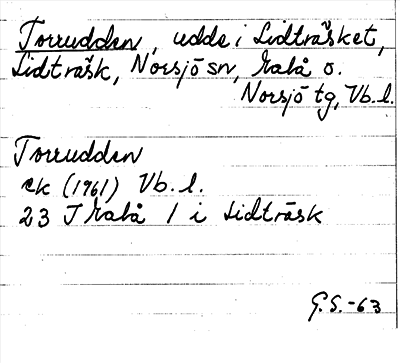 Torrudden, udde i Lidträsket,
Lidträsk, Norsjö sn, Malå o.
Norsjö tg, Vb.l.
Torrudden
ek (1961) Vb.l.
23 J Malå 1 i Lidträsk
G.S.-63